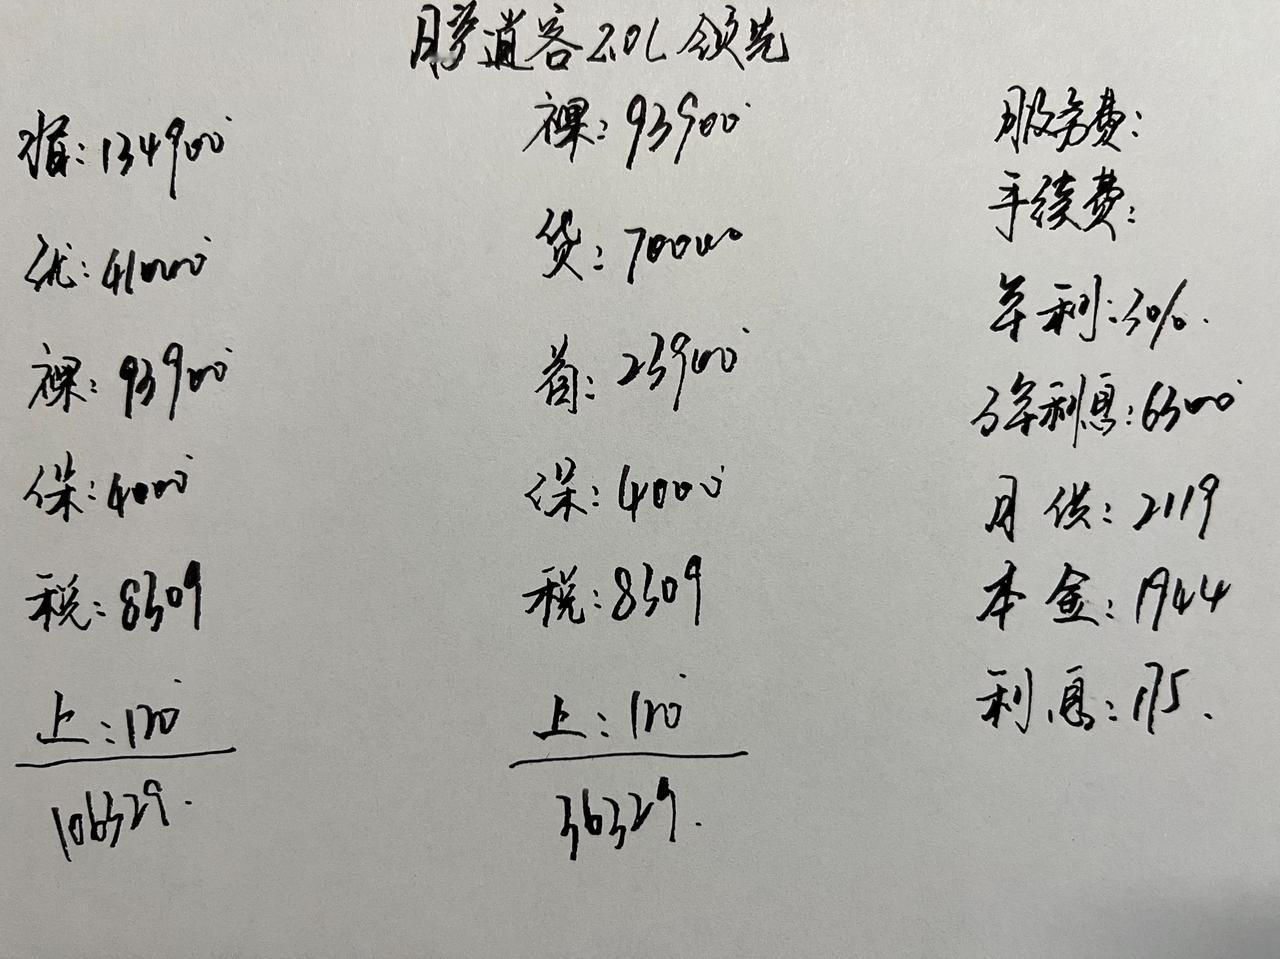 逍客2.0L领先
指:134900
优:41000
裸:93900
保:4000
税:8309
上:120
106329.
裸:93900
贷:70000
首:23900
保:4000
税:8309
上:120
36329.
服务费:
手续费:
年利:3%.
3年利息:6300
月供:2119
本金:1944
利息:175.